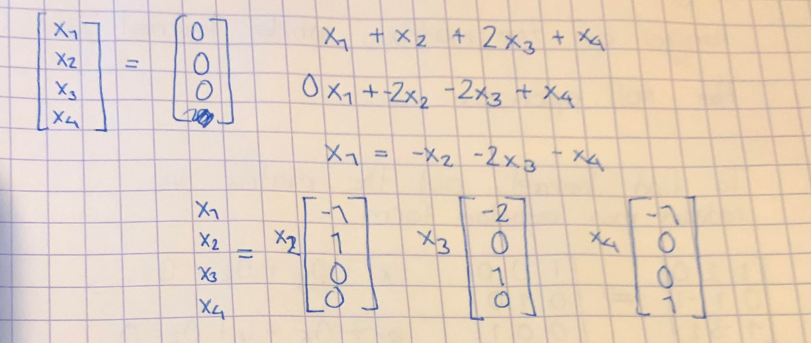 [x1 x2 x3 x4] = [0 0 0]
x1 + x2 + 2x3 + x4
0x1 + -2x2 - 2x3 + x4
x1 = -x2 - 2x3 - x4
x1 x2 x3 x4 = x2 [-1 1 0 0] x3 [-2 0 1 0] x4 [-1 0 0 1]